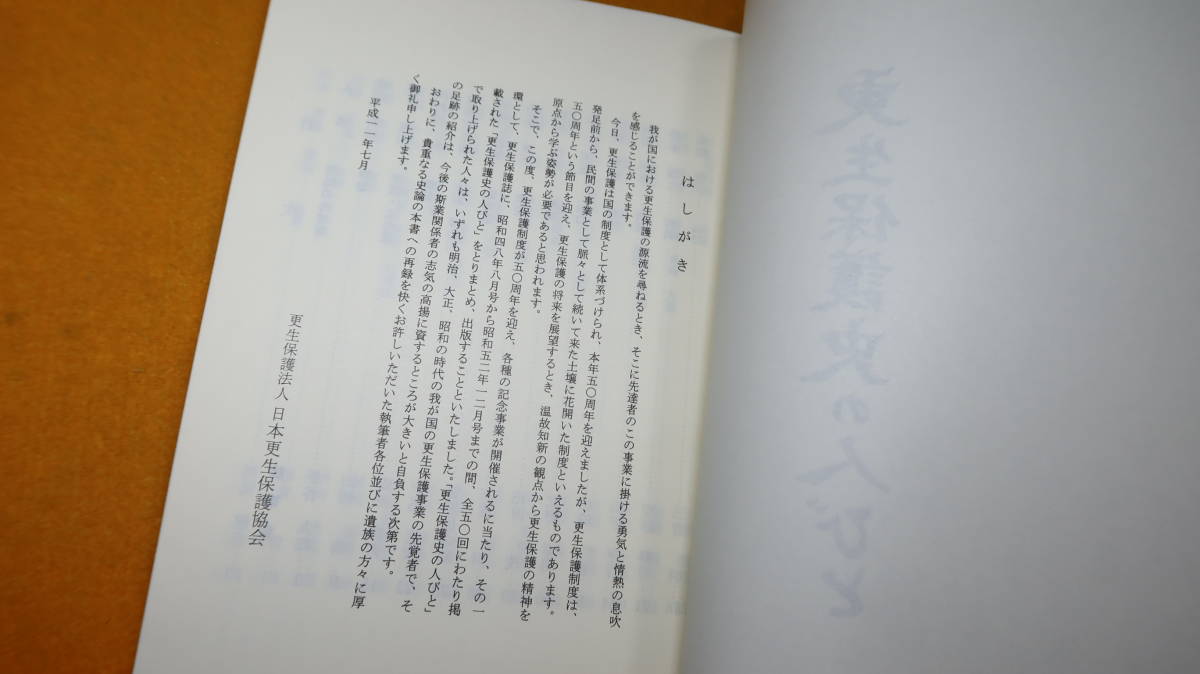 更生保護史の人びと
はしがき
我が国における更生保護の源流を尋ねるとき、そこに先達者のこの事業に掛ける勇気と情熱の息吹
を感じることができます。
今日、更生保護は国の制度として体系づけられ、本年五〇周年を迎えましたが、更生保護制度は、
発足前から、民間の事業として脈々として続いて来た土壌に花開いた制度といえるものであります。
五〇周年という節目を迎え、更生保護の将来を展望するとき、温故知新の観点から更生保護の精神を
原点から学ぶ姿勢が必要であると思われます。
そこで、この度、更生保護制度が五〇周年を迎え、各種の記念事業が開催されるに当たり、その一
環として、更生保護誌に、昭和四八年八月号から昭和五二年一二月号までの間、全五〇回にわたり掲
載された「更生保護史の人びと」をとりまとめ、出版することといたしました。「更生保護史の人びと」
で取り上げられた人々は、いずれも明治、大正、昭和の時代の我が国の更生保護事業の先覚者で、そ
の足跡の紹介は、今後の斯業関係者の志気の高揚に資するところが大きいと自負する次第です。
おわりに、貴重なる史論の本書への再録を快くお許しいただいた執筆者各位並びに遺族の方々に厚
く御礼申し上げます。
平成一一年七月
更生保護法人 日本更生保護協会